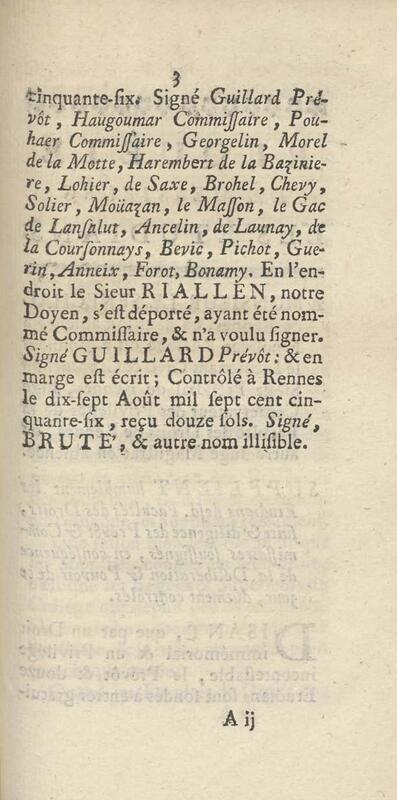 3
cinquante-ſix. Signé Guillard Pré-
vôt, Haugoumar Commiſſaire, Pou-
haer Commiſſaire, Georgelin, Morel
de la Motte, Harembert de la Bazinie-
re, Lohier, de Saxe, Brohel, Chevy,
Solier, Moüazan, le Maſſon, le Gac
de Lanſalut, Ancelin, de Launay, de
la Courſonnays, Bevic, Pichot, Gue-
rin, Anneix, Forot, Bonamy. En l'en-
droit le Sieur RIALLEN, notre
Doyen, s'eſt déporté, ayant été nom-
mé Commiſſaire, & n'a voulu ſigner.
Signé GUILLARD Prévôt: & en
marge eſt écrit; Contrôlé à Rennes
le dix-ſept Août mil ſept cent cin-
quante-ſix, reçu douze ſols. Signé,
BRUTE', & autre nom illiſible.
A ij